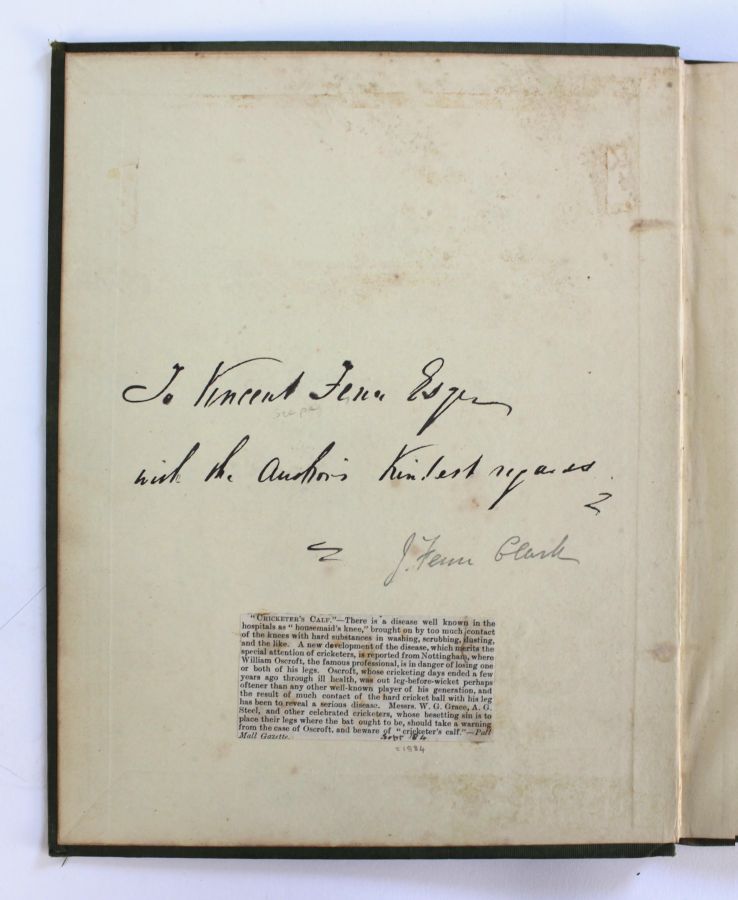 To Vincent Fenn Esqre
with the Authors Kindest regards
J. Fenn Clark
"CRICKETER'S CALF."—There is a disease well known in the
hospitals as "housemaid's knee," brought on by too much contact
of the knees with hard substances in washing, scrubbing, dusting,
and the like. A new development of the disease, which merits the
special attention of cricketers, is reported from Nottingham, where
William Oscroft, the famous professional, is in danger of losing one
or both of his legs. Oscroft, whose cricketing days ended a few
years ago through ill health, was out leg-before-wicket perhaps
oftener than any other well-known player of his generation, and
the result of much contact of the hard cricket ball with his leg
has been to reveal a serious disease. Messrs. W. G. Grace, A. G.
Steel, and other celebrated cricketers, whose besetting sin is to
place their legs where the bat ought to be, should take a warning
from the case of Oscroft, and beware of "cricketer's calf."—Pall
Mall Gazette. Sept 184
=1984